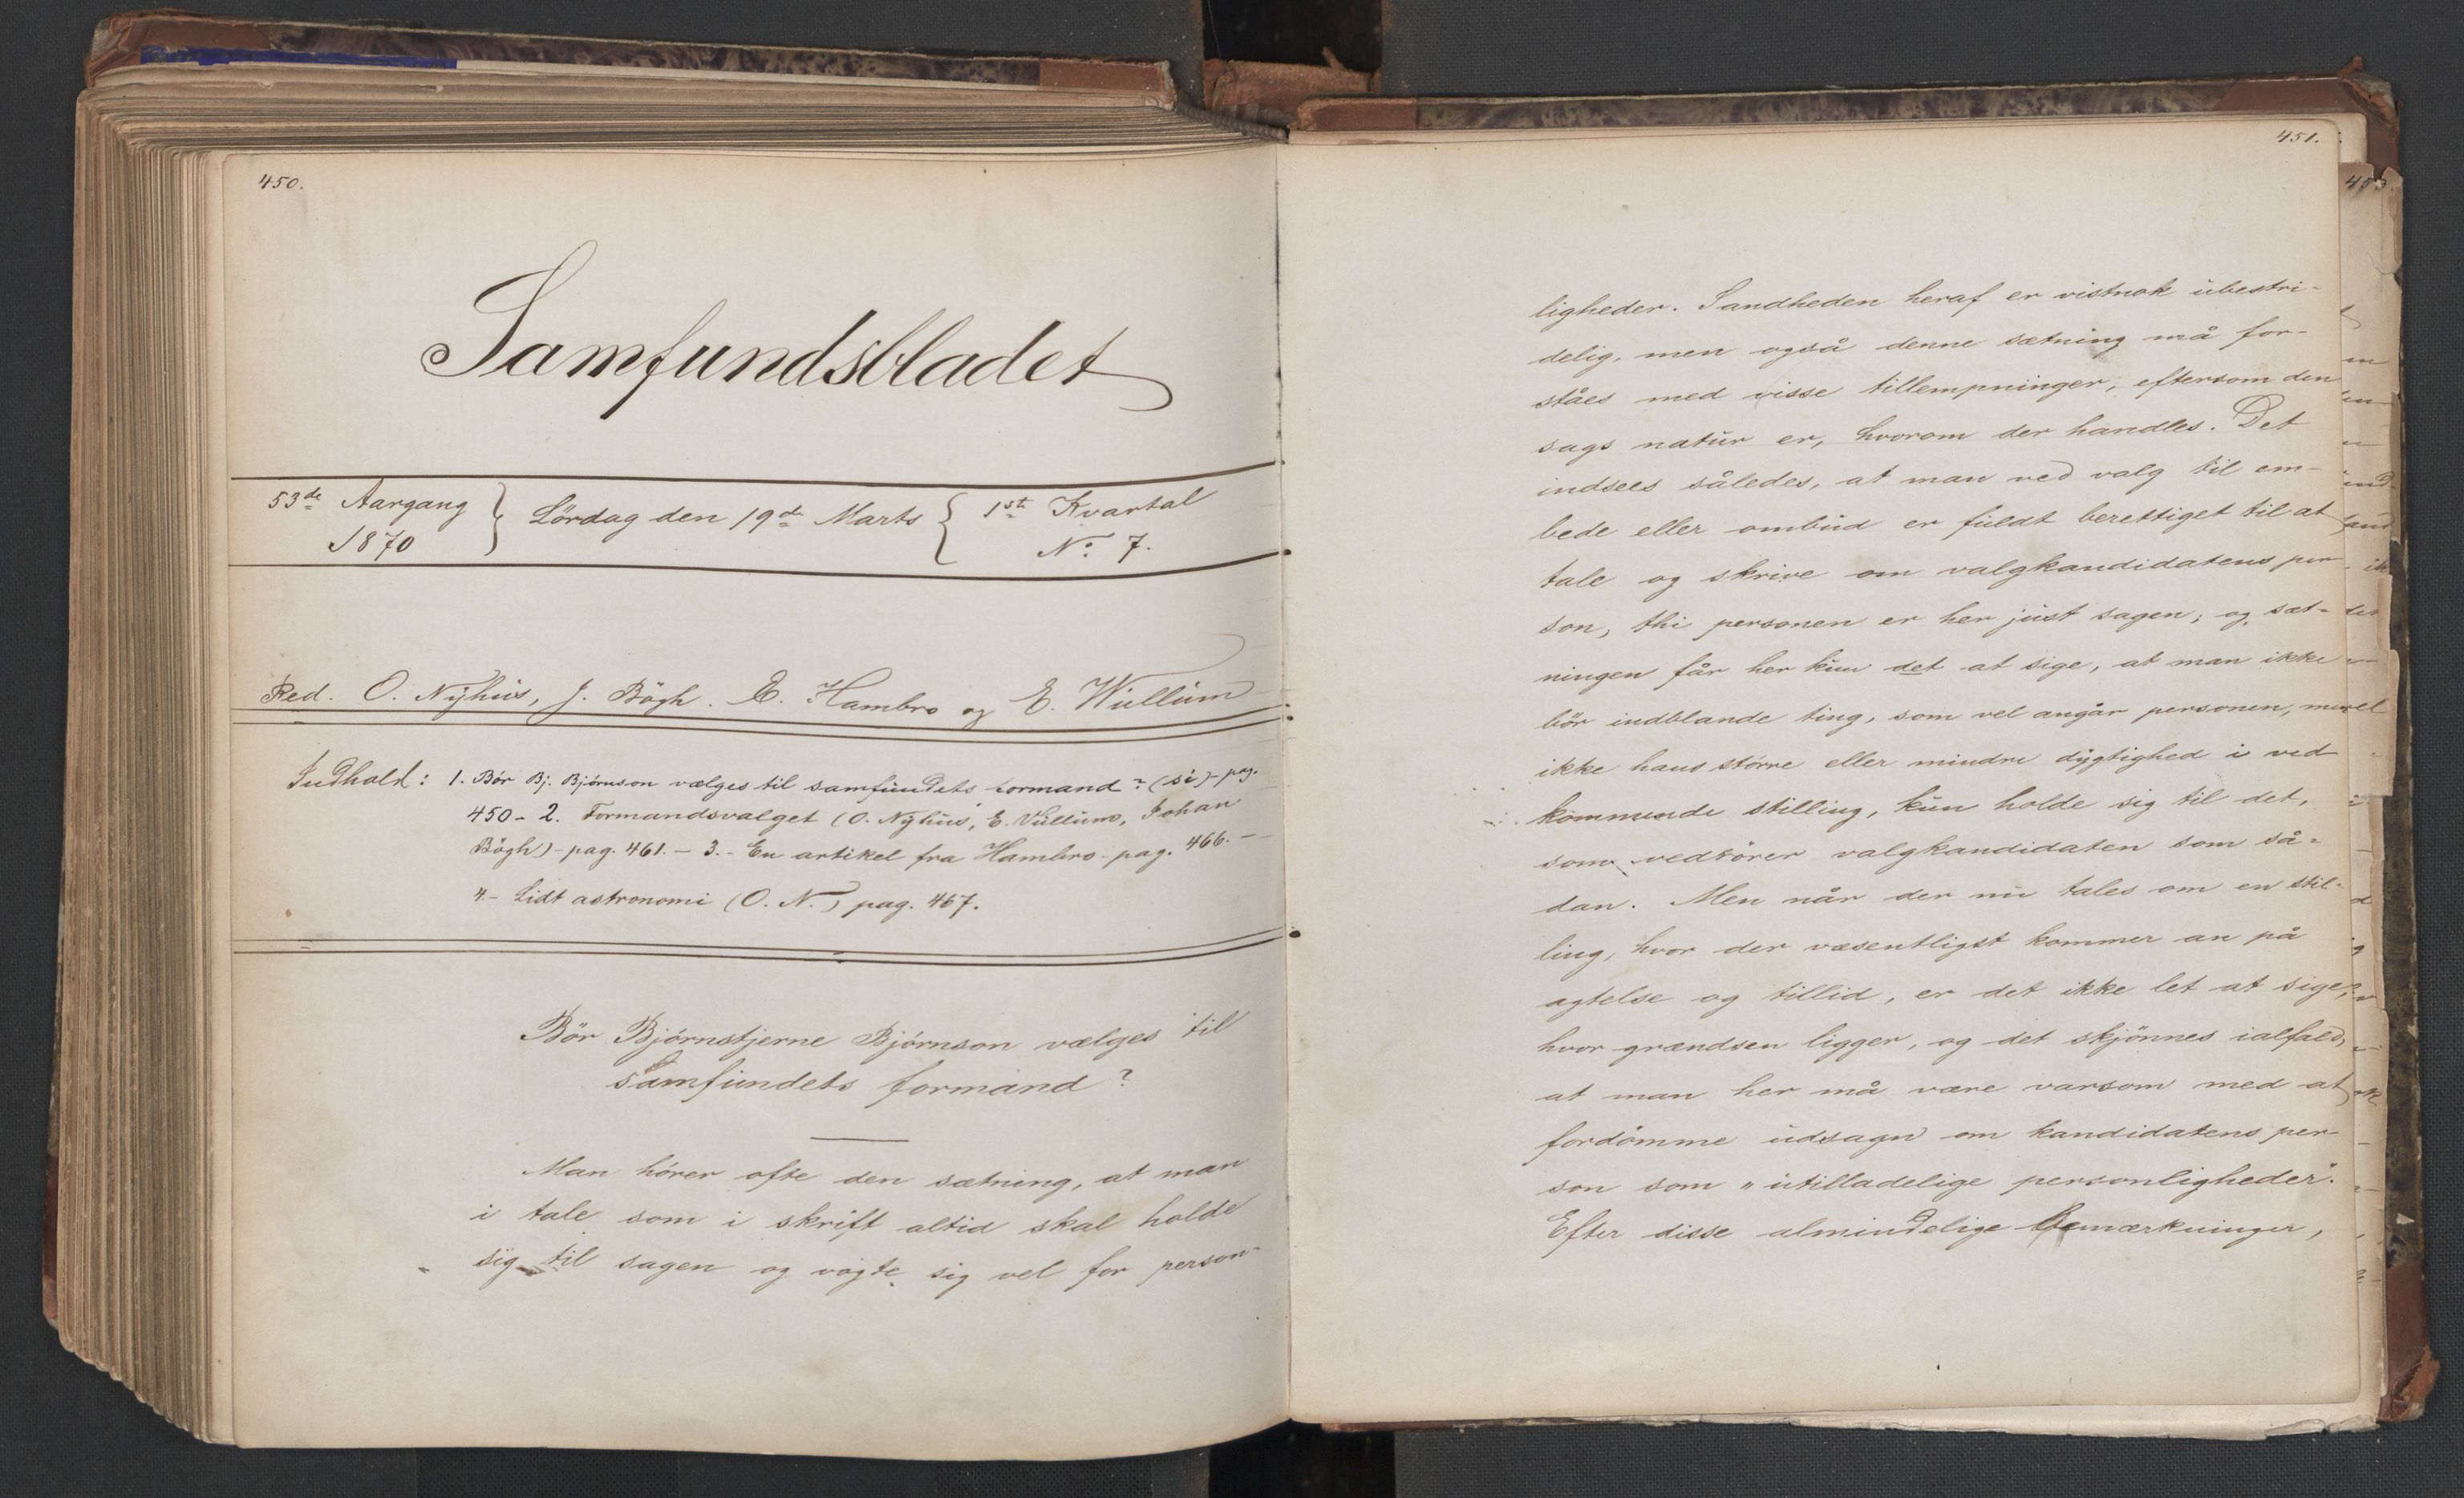 450.
Samfundsbladet
53de Aargang
1870
Lördag den 19de Marts
1ste Kvartal
No. 7.
Red. O. Nyhus, J. Bögh. E. Hambro og E. Wullum
Indhold: 1. Bör Bj. Björnson vælges til samfundets formand? (si) - pag.
450 - 2. Formandsvalget (O. Nyhus, E. Vullum, Johan
Bögh) - pag. 461. - 3. - En artikel fra Hambro - pag. 466. -
4. - Lidt astronomi (O. N.) pag. 467.
Bör Björnstjerne Björnson vælges til
Samfundets formand?
Man hörer ofte den sætning, at man
i tale som i skrift altid skal holde
sig til sagen og vogte sig vel for person-
451.
ligheder. Sandheden heraf er vistnok ubestri-
delig, men også denne sætning må for-
ståes med visse tillempninger, eftersom den
sags natur er, hvorom der handles. Det
indsees således, at man ved valg til em-
bede eller ombud er fuldt berettiget til at
tale og skrive om valgkandidatens per
son, thi personen er her just sagen; og sæt-
ningen får her kun det at sige, at man ikke
bör indblande ting, som vel angår personen, men
ikke hans större eller mindre dygtighed i ved
kommende stilling, kun holde sig til det,
som vedrörer valgkandidaten som så-
dan. Men når der nu tales om en stil-
ling, hvor der væsentligst kommer an på
agtelse og tillid, er det ikke let at sige,
hvor grændsen ligger, og det skjönnes ialfald,
at man her må være varsom med at
fordömme udsagn om kandidatens per-
son som "utilladelige personligheder".
Efter disse almindelige Bemærkninger,